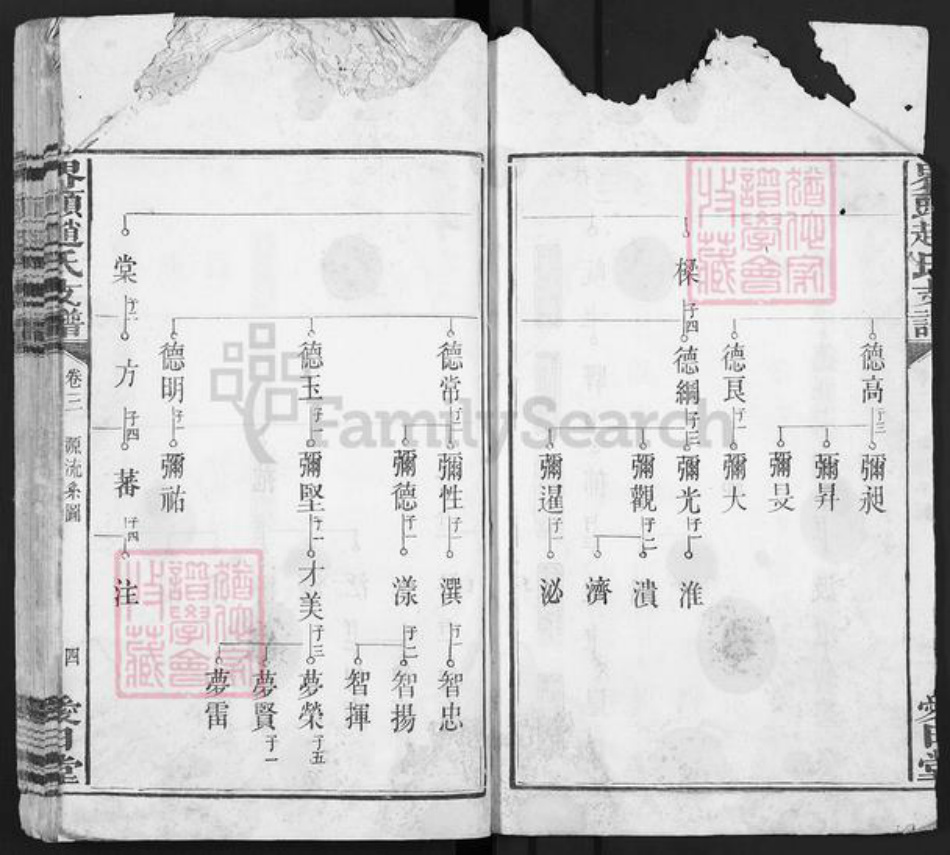 德高 子三
彌昶
彌昇
彌旻
德良 子一
彌大
樑 子四
德綱 子三
彌光 子一
淮
彌觀 子二
潰
濟
彌暹 子一
泌
德常 子二
彌性 子一
潩 子一
智忠
彌德 子一
漾 子二
智揚
智揮
德玉 子一
彌堅 子一
才美 子三
夢榮 子五
夢賢 子一
夢雷
德明 子一
彌祐
棠 子二
方 子四
蕃 子四
注
界頭趙氏支譜
卷三
源流系圖
四
愛日堂
界頭趙氏支譜
愛日堂
譜學會
收藏
譜學會
收藏
FamilySearch